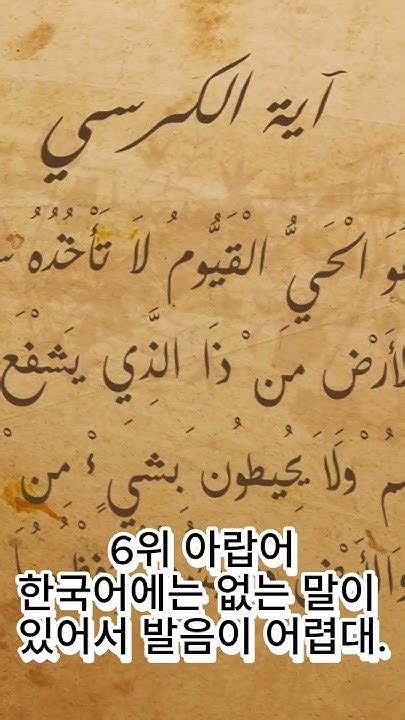 آية الكرسي
هُوَ الْحَيُّ الْقَيُّومُ لَا تَأْخُذُهُ
الْأَرْضِ مَنْ ذَا الَّذِي يَشْفَعُ
وَلَا يُحِيطُونَ بِشَيْءٍ مِنْ
6위 아랍어
한국어에는 없는 말이
있어서 발음이 어렵대.